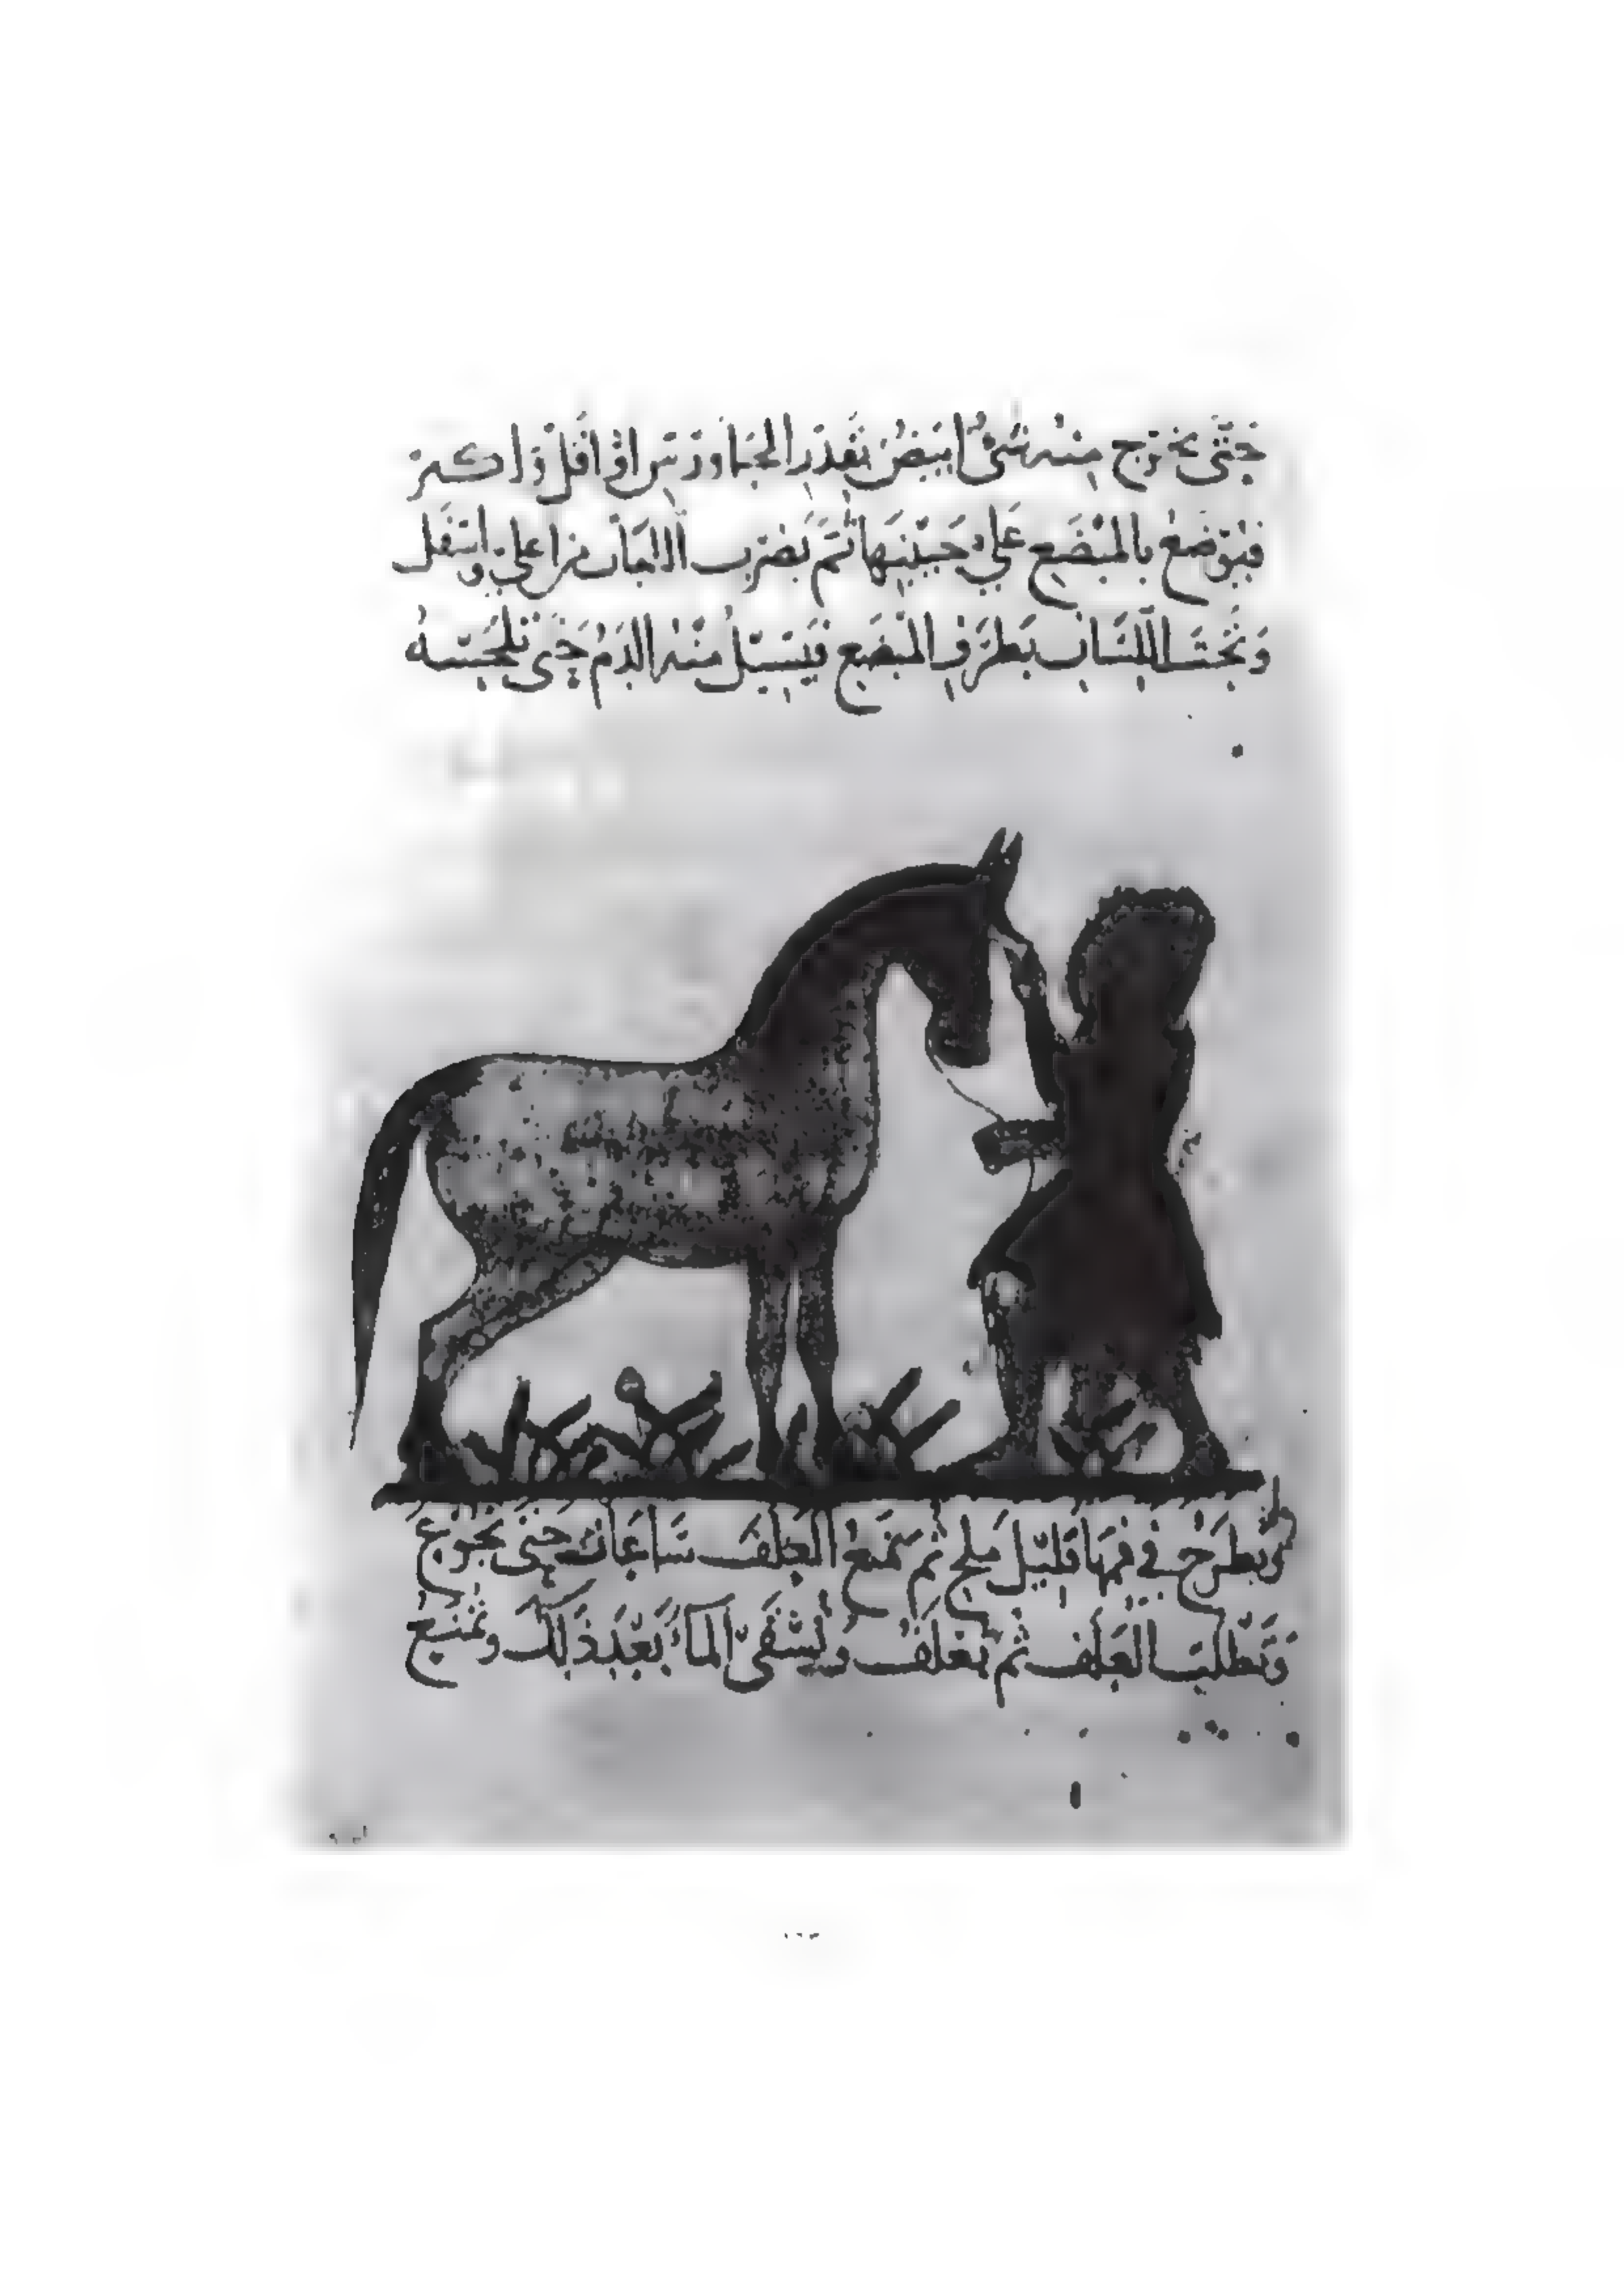 حَتّى يخرج منه شئ ابيض بقدر الجاورس او اقل و اكبر
فيوضع بالمبضع على جبينها ثم يضرب من اعلى واسفل
اللسان بطرف المبضع فيسيل منه الدم حتى تلحسه
ويطرح في فمها قليل ملح ثم تمنع العلف ساعات حتى تجوع
وتطلب العلف ثم تعلف وتسقى الماء بعد ذلك وتمنع